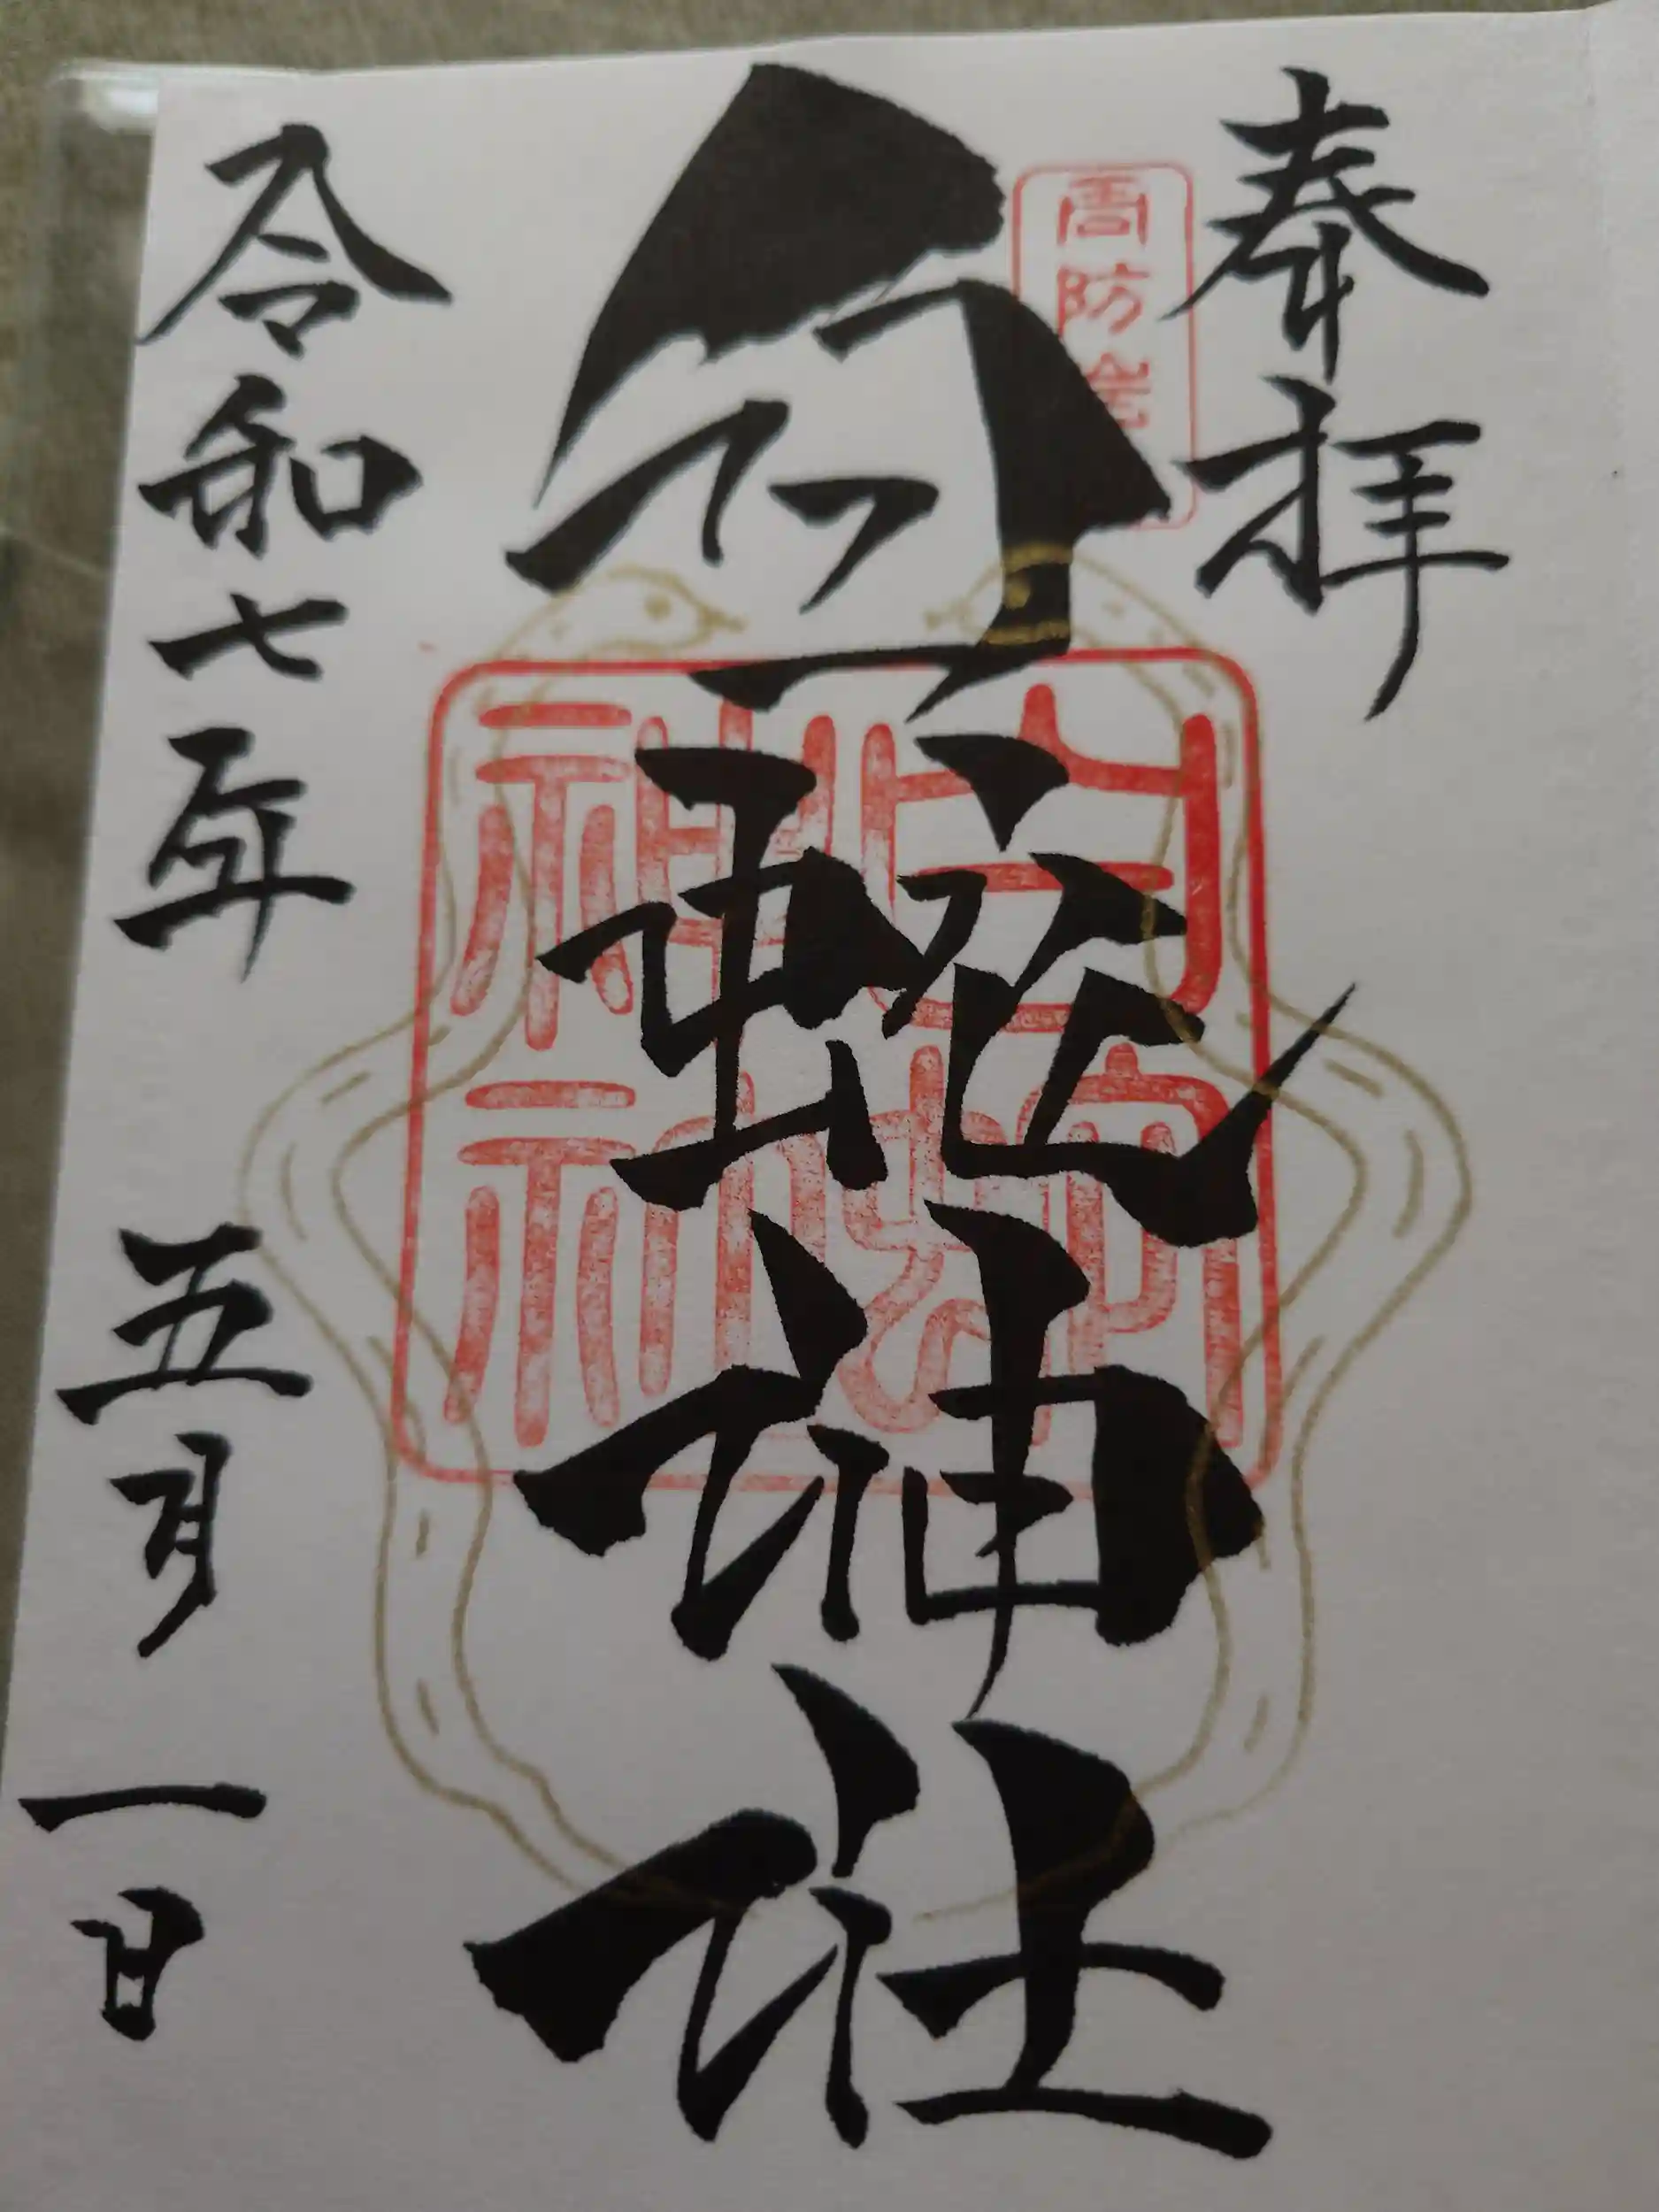 奉拝
周防岩
白蛇神社
白蛇神社
令和七年 五月一日